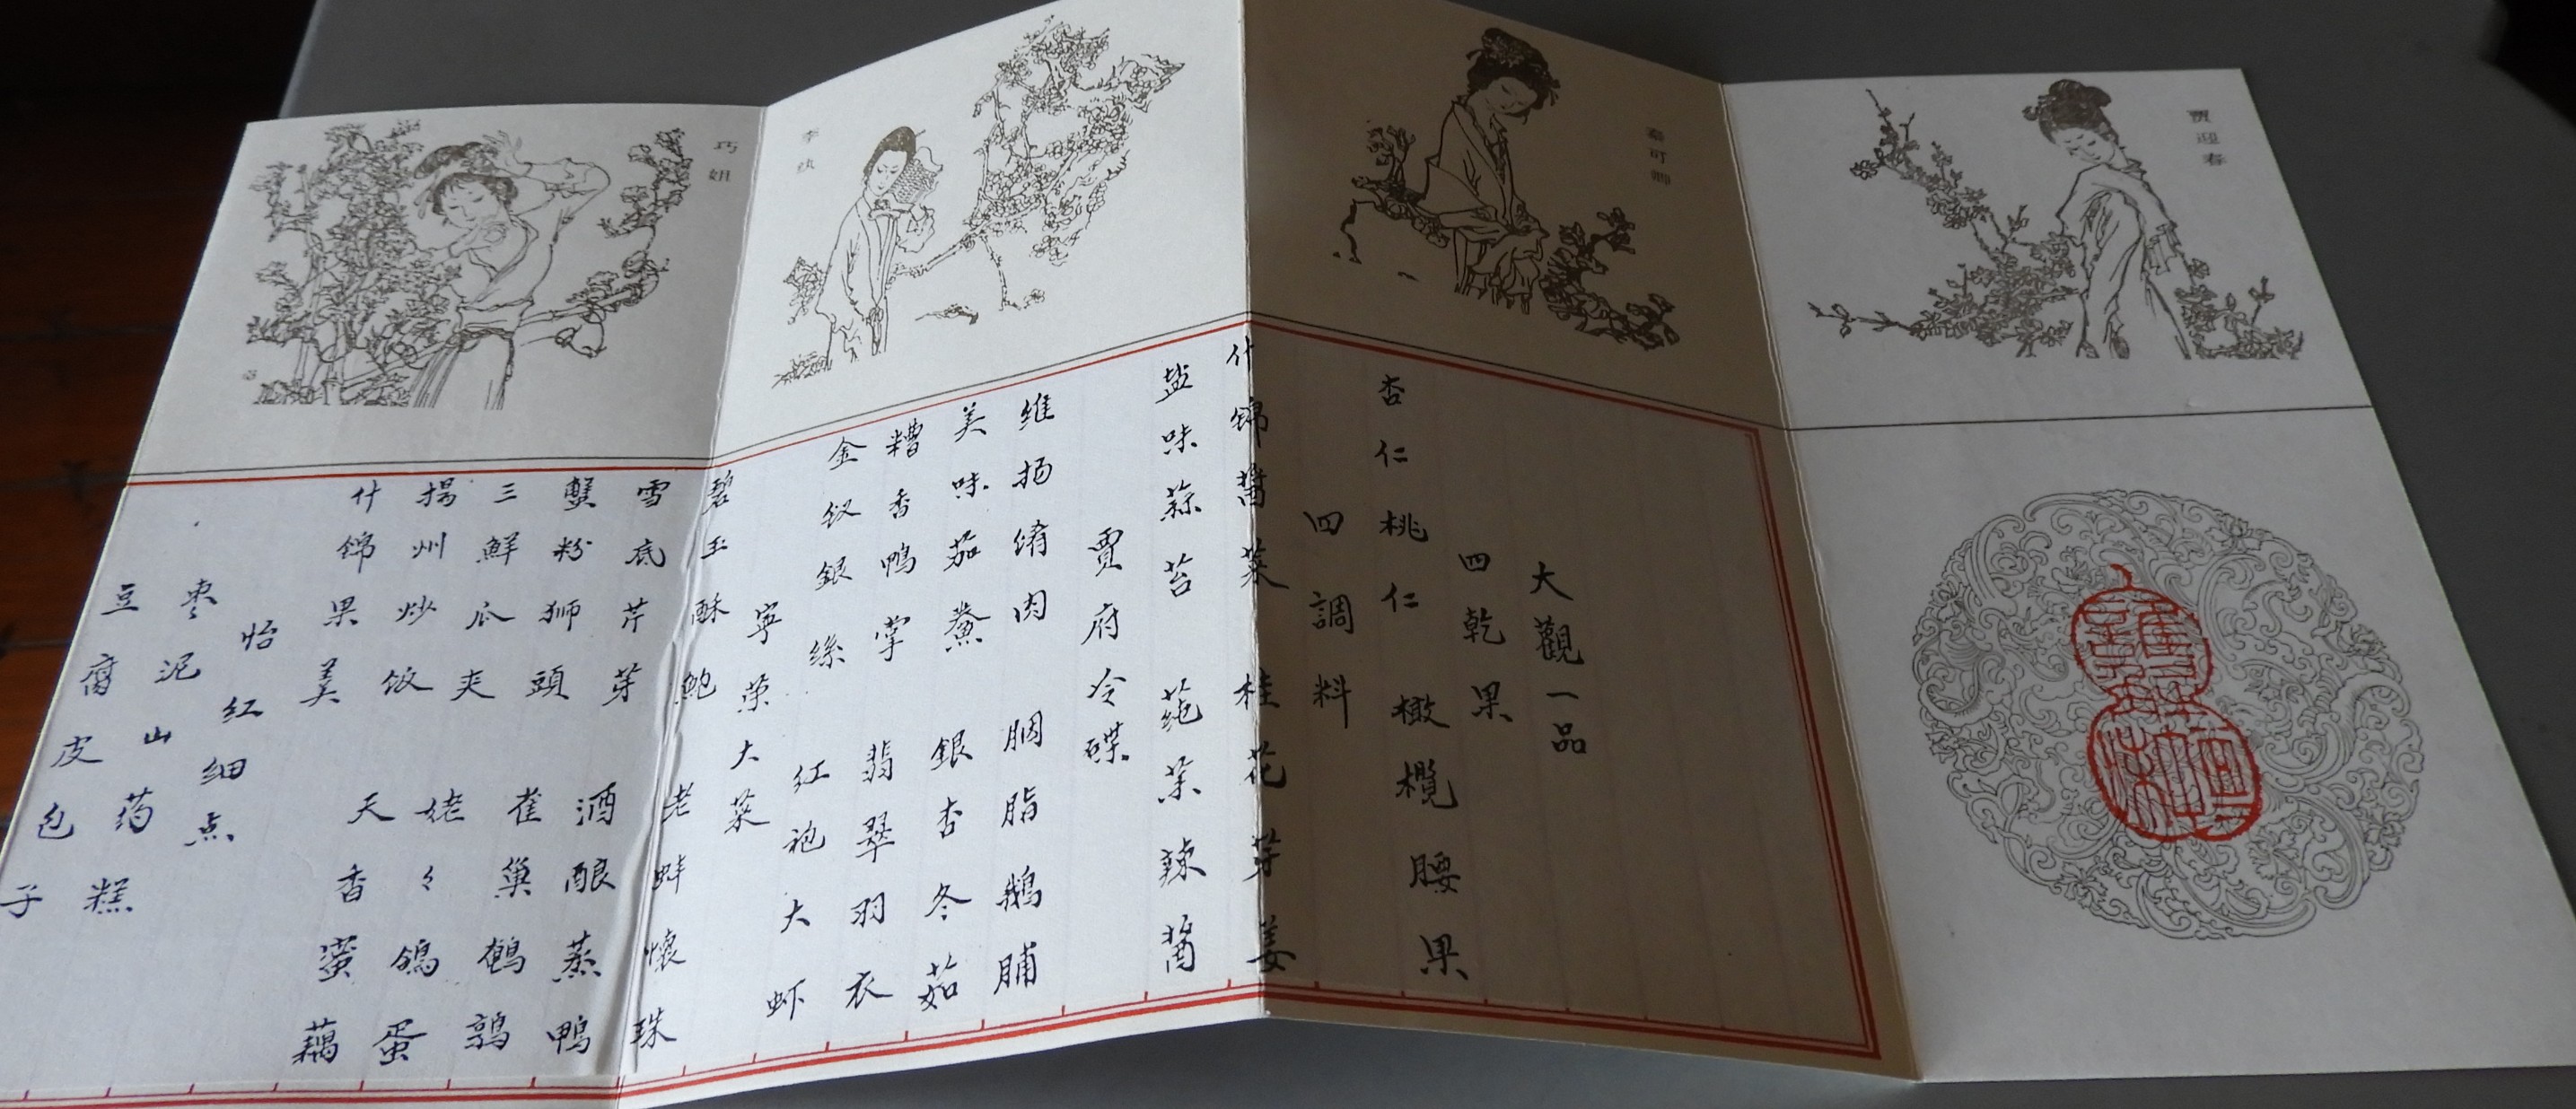 贾迎春
秦可卿
李纨
巧姐
大觀一品
四乾果
杏仁 桃仁 橄欖 腰果
四調料
什锦醬菜 桂花芽姜
盐味蒜苔 莼菜辣醬
賈府冷碟
维扬餚肉 胭脂鹅脯
美味茄鲞 銀杏冬菇
糟香鸭掌 翡翠羽衣
金钗銀絲 红袍大虾
寧荣大菜
碧玉酥鲍 老蚌懷珠
雪底芹芽 酒酿蒸鸭
蟹粉狮頭 雀巢鹌鹑
三鮮瓜夹 姥々鴿蛋
揚州炒饭 天香藕
什锦果羹
怡红细点
枣泥山药糕
豆腐皮包子